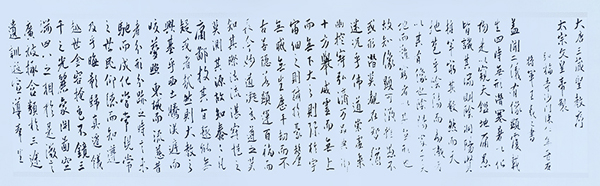 大唐三藏聖教序
太宗文皇帝製
弘福寺沙門懷仁集晉右
將軍王羲之書
蓋聞二儀有像顯覆載以含
生四時無形潛寒暑以化
物是以窺天鑑地庸愚
皆識其端明陰洞陽賢
哲罕窮其數然而天
地苞乎陰陽而易識者
以其有像也陰陽處乎天
地而難窮者以其無形也
故知像顯可徵雖愚不
惑形潛莫覩在智猶
迷況乎佛道崇虛乘
幽控寂弘濟萬品典御
十方舉威靈而無上
抑神力而無下大之則彌於宇
宙細之則攝於毫釐
無滅無生歷千劫而不
古若隱若顯運百福而
長今妙道凝玄遵之莫
知其際法流湛寂挹之
莫測其源故知蠢蠢凡愚區區
庸鄙投其旨趣能無
疑惑者哉然則大教之
興基乎西土騰漢庭而
皎夢照東域而流慈昔
者分形分跡之時言未
馳而成化當常現常
之世民仰德而知遵
及乎晦影歸真遷儀
越世金容掩色不鏡三
千之光麗象開圖空
端四八之相於是微言
廣被拯含類於三途
遺訓遐宣導群生